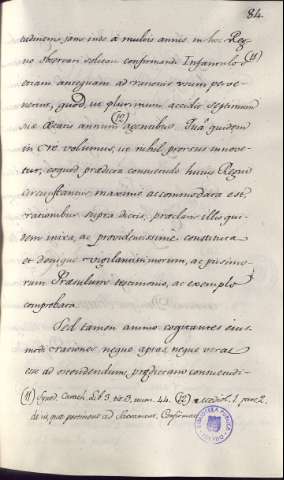 84.
tudinem, jam inde à multis annis in hoc Reg-
no observari solitam confirmandi Infantulos (11)
etiam antequam ad rationis usum perve-
nerint, quod, ut plurimum accidit septimum
suæ ætatis annum (12) agentibus. Qua quidem
in re volumus, ut nihil prorsus innove-
tur, eoquod, prædicta consuetudo hujus Regni
circunstantiis maxime accommodata est,
rationibus supra dictis, præclare illis qui-
dem nixa, ac providentissime constituta
et denique vigilantissimorum, ac piissimo-
rum Præsulum testimonio, ac exemplo
comprobata.
Sed tamen animo cogitantes ejus-
modi rationes neque aptas, neque veras
esse ad ostendendum, prædictam consuetudi-
(11) Synod. Conch. lib. 3 tit. 3, num. 44. (12) Mediol. 1. part. 2.
de iis, quæ pertinent ad Sacrament. Confirmat.
BIBLIOTECA PUBLICA
TOLEDO